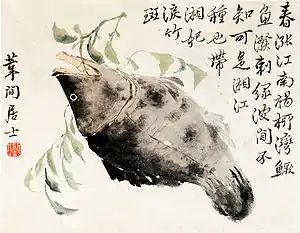 春漲江南楊柳灣鱖
魚潑剌綠波間不
知可是湘江
種也帶
湘妃
淚竹
斑
葦間居士